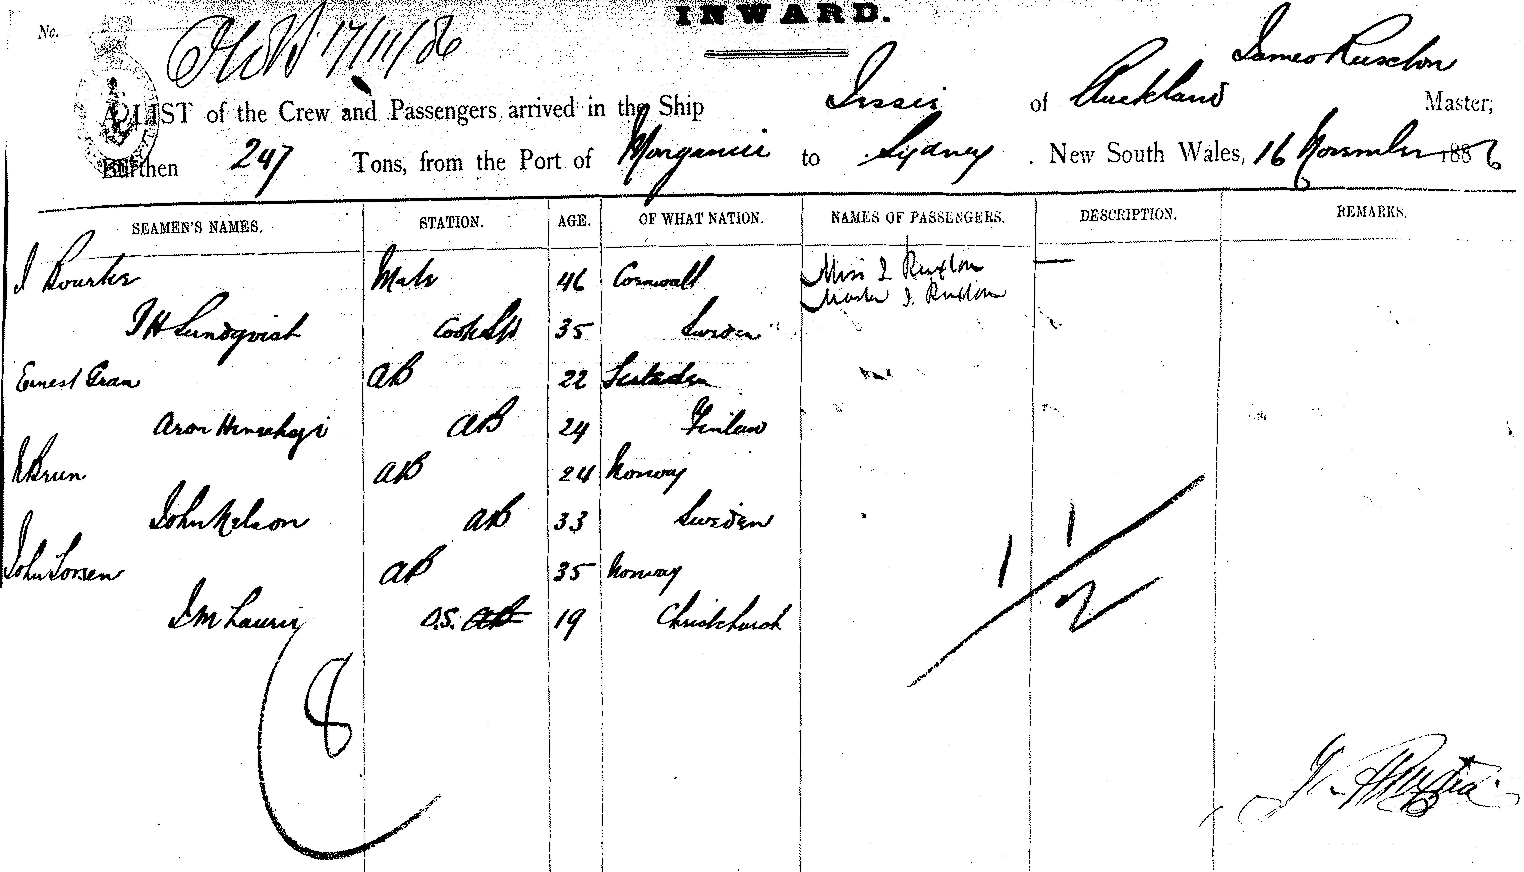 INWARD.
No.
17/11/86
James Ruxton
A LIST of the Crew and Passengers arrived in the Ship Jessie of Auckland Master,
Burthen 247 Tons, from the Port of to Sydney . New South Wales, 16 November 1886
SEAMEN'S NAMES. STATION. AGE. OF WHAT NATION. NAMES OF PASSENGERS. DESCRIPTION. REMARKS.
J Mate 46 Cornwall Miss J Ruxton
Master J. Ruxton
J H Lundqvist Cook & St 35 Sweden
Ernest Gran AB 22
Aron AB 24 Finlan
Brun AB 24 Norway
John Nelson AB 33 Sweden
John Lorsen AB 35 Norway
J M Laurie O.S. AB 19 Christchurch
1 1
2
8